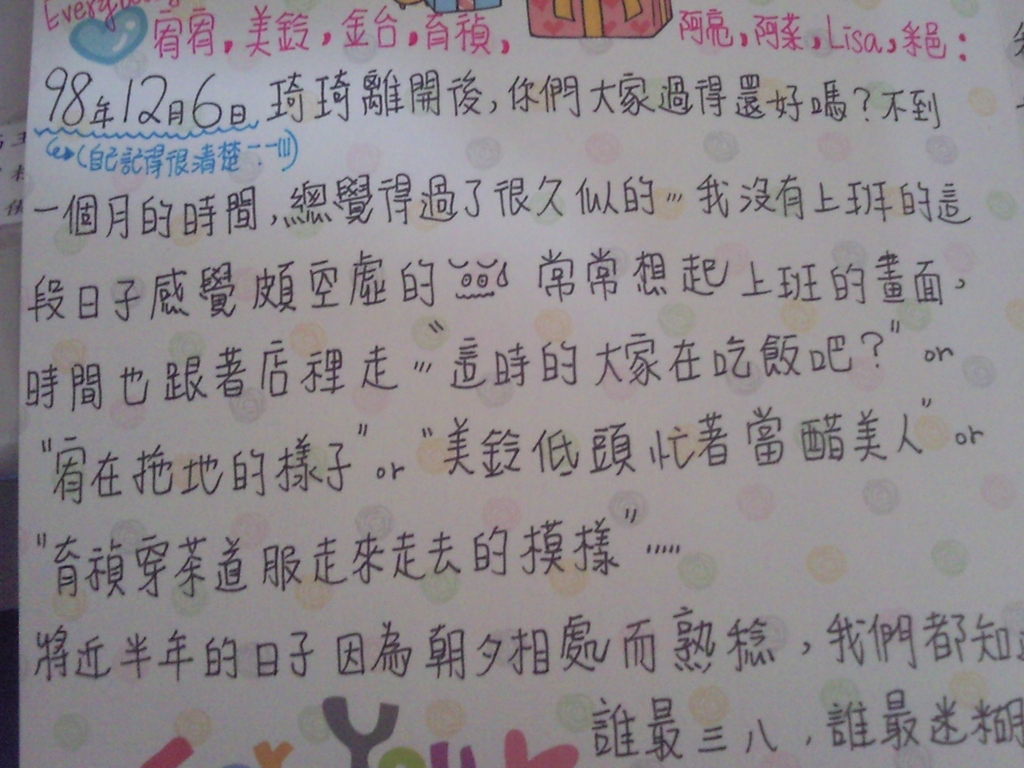 Everybody
宥宥,美鈴,金台,育禎,阿亮,阿菜,Lisa,
98年12月6日 琦琦離開後,你們大家過得還好嗎?不到
(自己記得很清楚
一個月的時間,總覺得過了很久似的…我沒有上班的這
段日子感覺頗空虛的 常常想起上班的畫面,
時間也跟著店裡走…“這時的大家在吃飯吧?” or
“宥在拖地的樣子” or “美鈴低頭忙著當醋美人” or
“育禎穿茶道服走來走去的模樣”……
將近半年的日子因為朝夕相處而熟稔,我們都知
誰最三八,誰最迷糊
For You